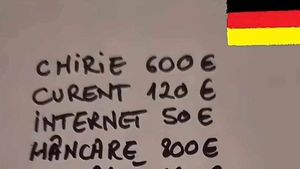 CHIRIE 600 €
CURENT 120 €
INTERNET 50 €
MÂNCARE 800 €